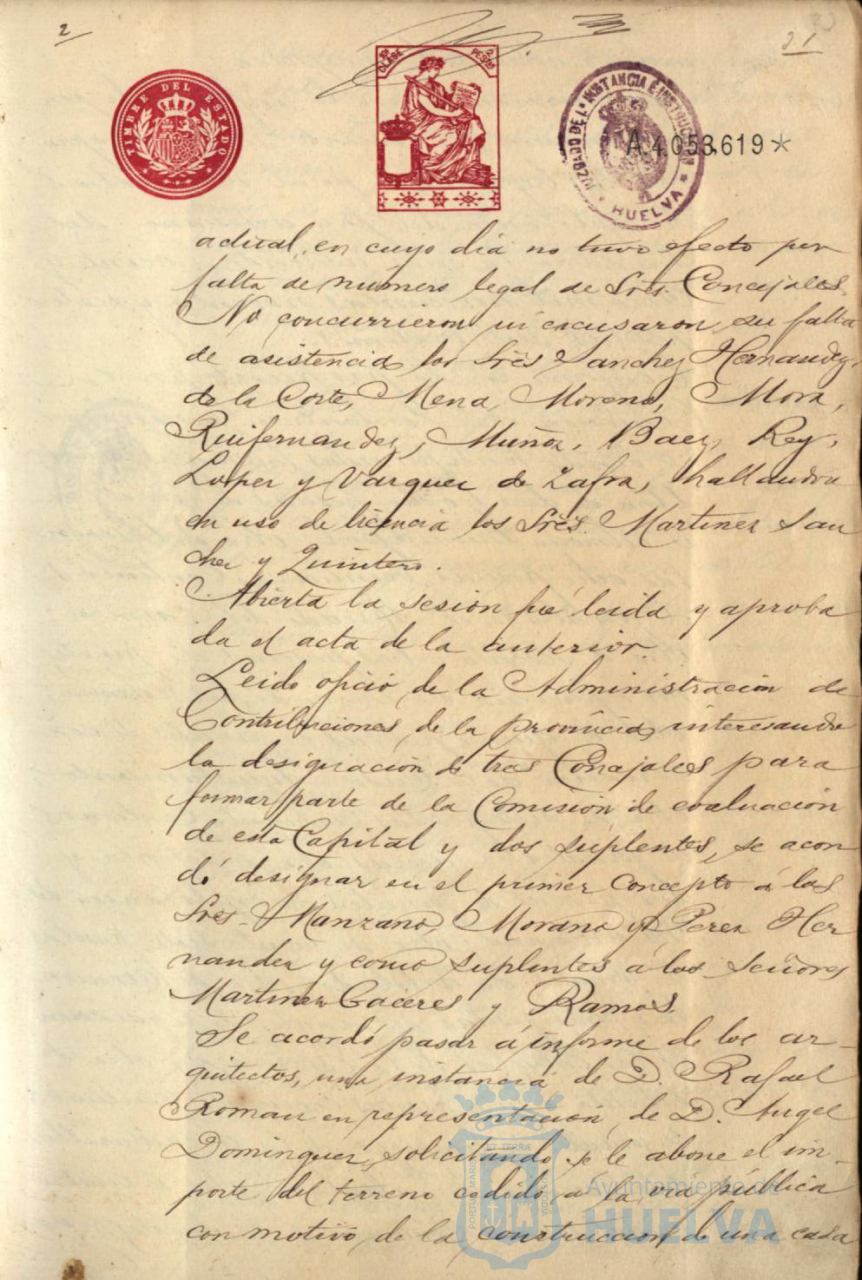 2
21
TIMBRE DEL ESTADO
CLASE 2 PESETAS
JUZGADO DE 1ª INSTANCIA E INSTRUCCION HUELVA
A.4.053,619*
actual, en cuyo dia no tuvo efecto por
falta de número legal de Sres. Concejales.
No concurrieron ni escusaron su falta
de asistencia los Sres Sanchez Hernandez,
de la Corte, Mena, Moreno, Mora,
Ruifernandez, Muñoz, Baez, Rey,
Lopez y Vazquez de Zafra, hallandose
en uso de licencia los Sres. Martinez San
chez y Quintero.
Abierta la sesion fué leida y aproba
da el acta de la anterior.
Leido oficio de la Administracion de
Contribuciones de la provincia, interesando
la designacion de tres Concejales para
formar parte de la Comision de evaluacion
de esta Capital y dos suplentes, se acor
dó designar en el primer concepto á los
Sres. Manzano, Morano y Perez Her
nandez y como suplentes á los señores
Martinez Caceres y Ramos.
Se acordó pasar á informe de los ar-
quitectos, una instancia de D. Rafael
Roman en representacion de D. Angel
Dominguez, solicitando se le abone el im-
porte del terreno cedido a la via pública
con motivo de la construccion de una casa
PORTUS MARIS ET TERRÆ CUSTODIA
Ayuntamiento de
HUELVA